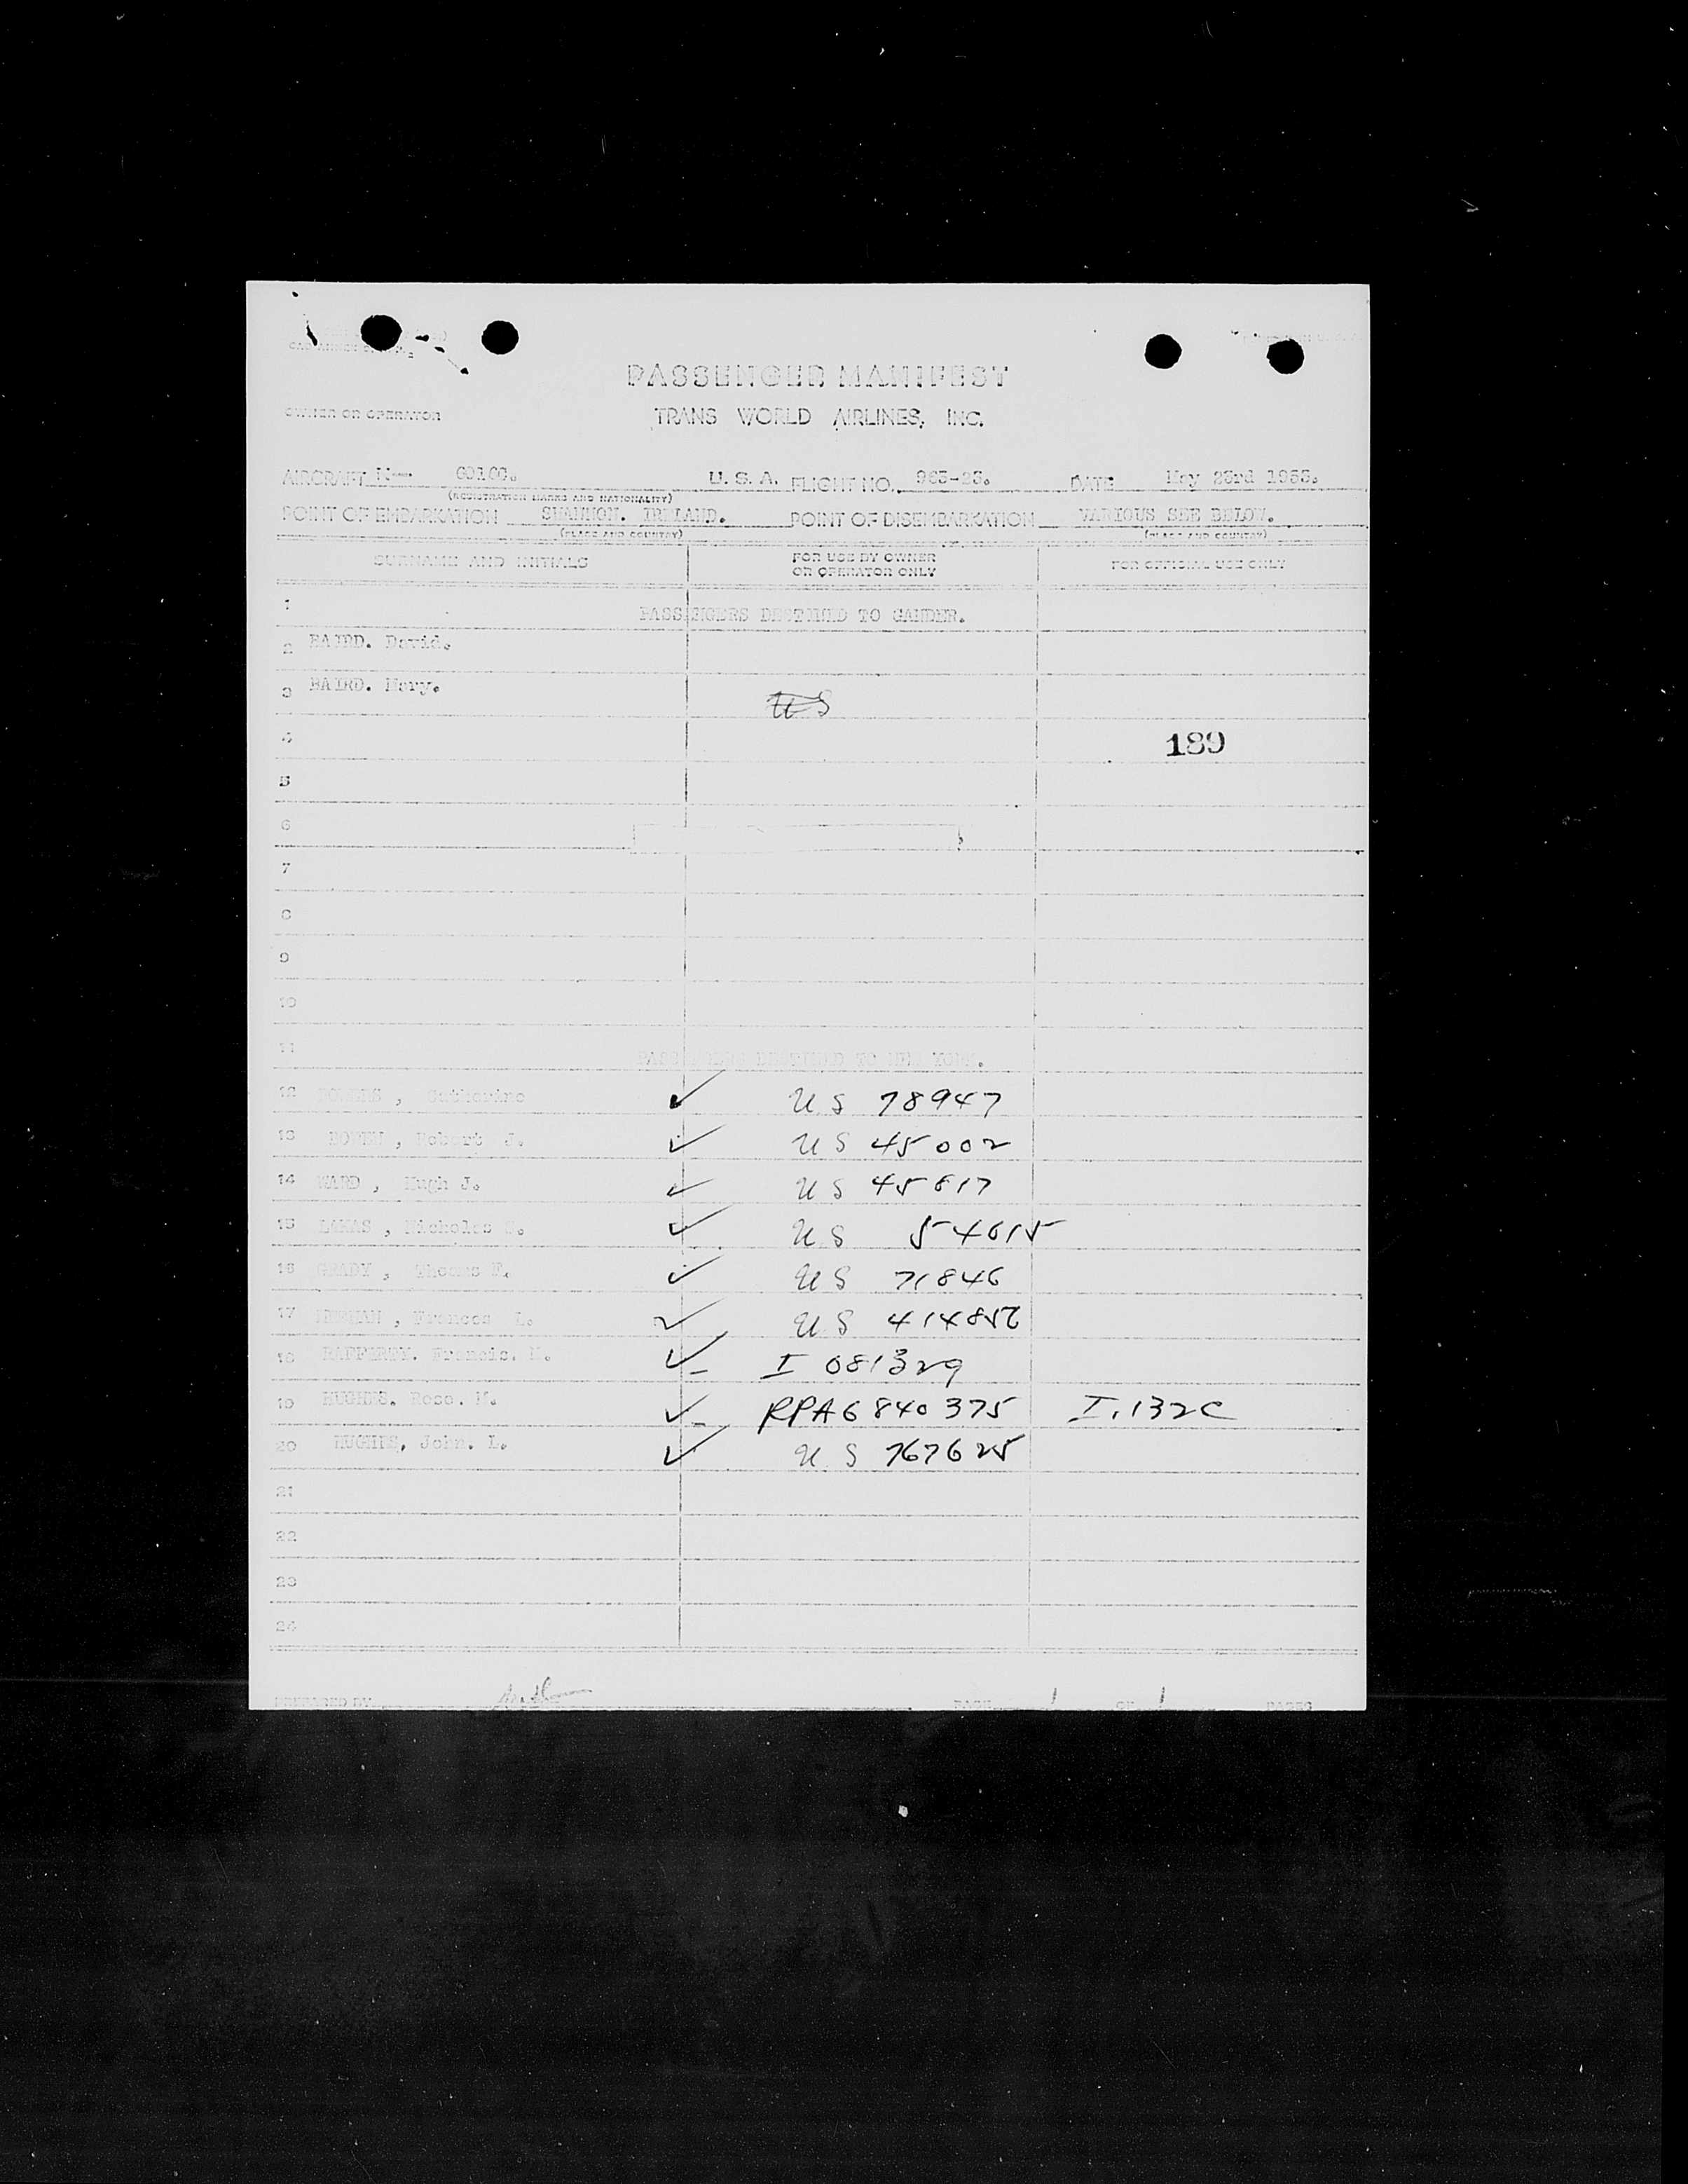 PASSENGER MANIFEST
OWNER OR OPERATOR TRANS WORLD AIRLINES, INC.
AIRCRAFT N— U. S. A. FLIGHT NO. 963-23. DATE May 23rd 1953.
(REGISTRATION MARKS AND NATIONALITY)
POINT OF EMBARKATION SHANNON. IRELAND. POINT OF DISEMBARKATION VARIOUS SEE BELOW.
(PLACE AND COUNTRY) (PLACE AND COUNTRY)
SURNAME AND INITIALS FOR USE BY OWNER OR OPERATOR ONLY FOR OFFICIAL USE ONLY
1 PASSENGERS DESTINED TO GANDER.
2 BAIRD. David.
3 BAIRD. Mary. US
4 189
5
6
7
8
9
10
11 PASSENGERS DESTINED TO NEW YORK.
12 , Catherine ✓ US 78947
13 BOWEN , Robert J. ✓ US 45002
14 WARD , Hugh J. ✓ US 45817
15 , Nicholas ✓ US 54615
16 GRADY , Thomas F. ✓ US 71846
17 , Frances L. ✓ US 414856
18 RAFFERTY. Francis. M. ✓ – I 081329
19 HUGHES. Rose. M. ✓ – RPA6840375 I.132C
20 HUGHES, John. L. ✓ US 767625
21
22
23
24
PREPARED BY PAGE 1 OF 1 PAGES